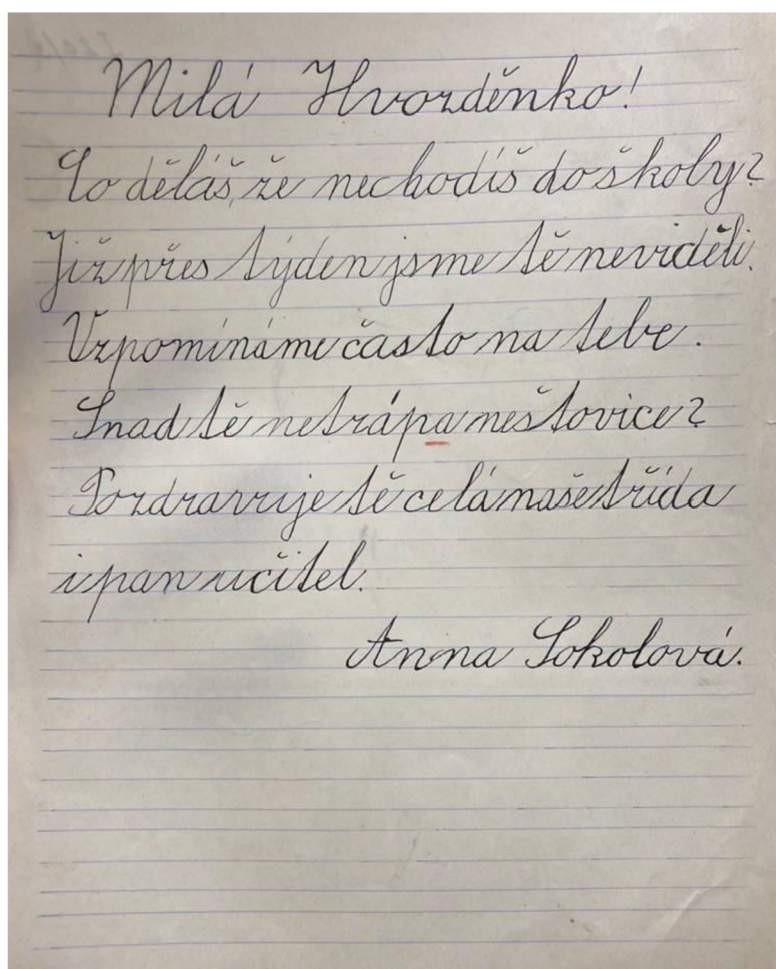 Milá Hvozděnko!
Co děláš, že nechodíš do školy?
Již přes týden jsme tě neviděli.
Vzpomínáme často na tebe.
Snad tě netrápa neštovice?
Pozdravuje tě celá naše třída
i pan učitel.
Anna Sokolová.